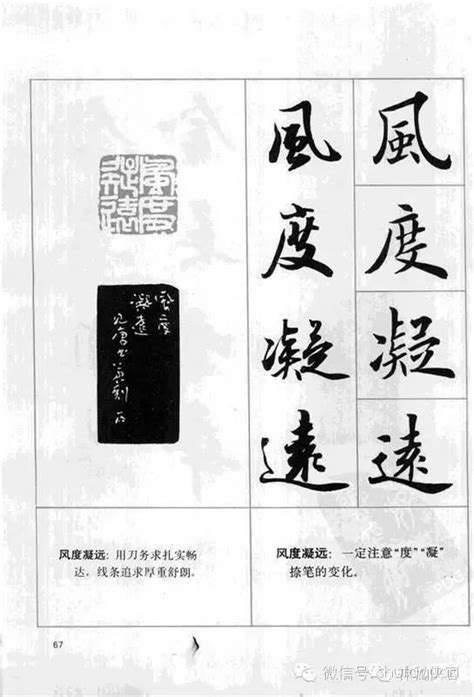 風度凝遠
風度凝遠
風度凝遠
風度
凝遠
风度凝远：用刀务求扎实畅
达，线条追求厚重舒朗。
风度凝远：一定注意“度”“凝”
捺笔的变化。
67
微信号